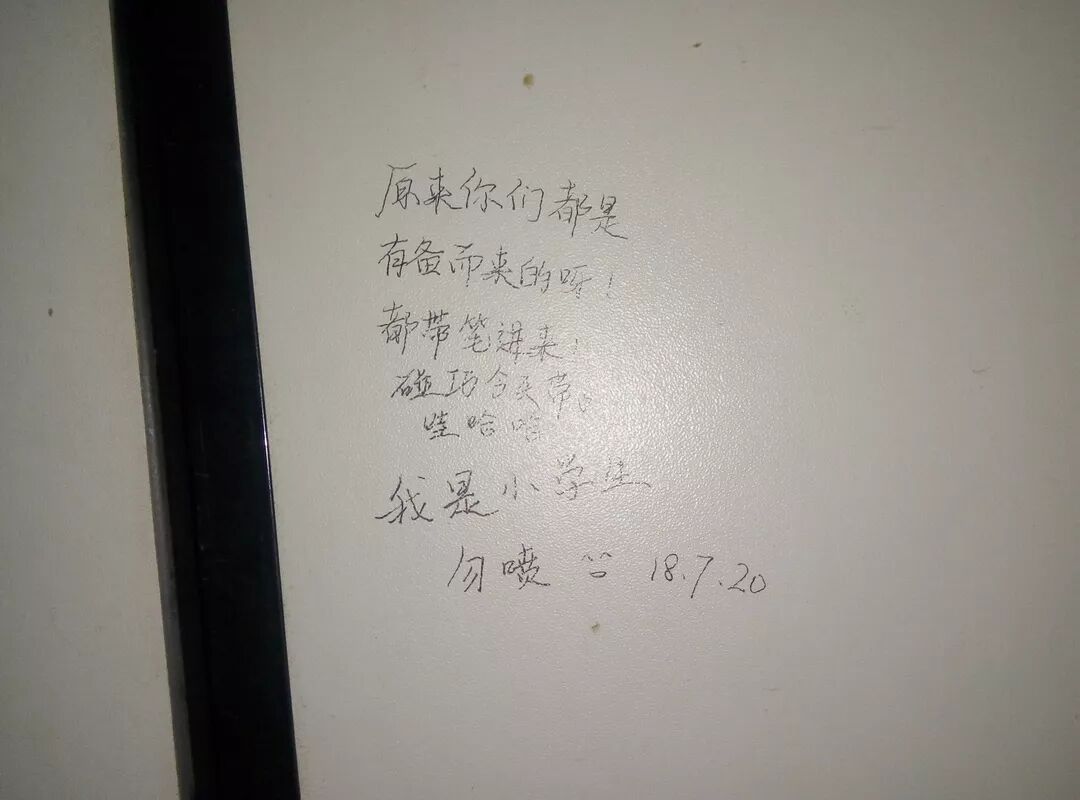 原来你们都是
有备而来的呀！
都带笔进来！
碰巧今天带。
哇哈哈
我是小学生
勿喷 18.7.20